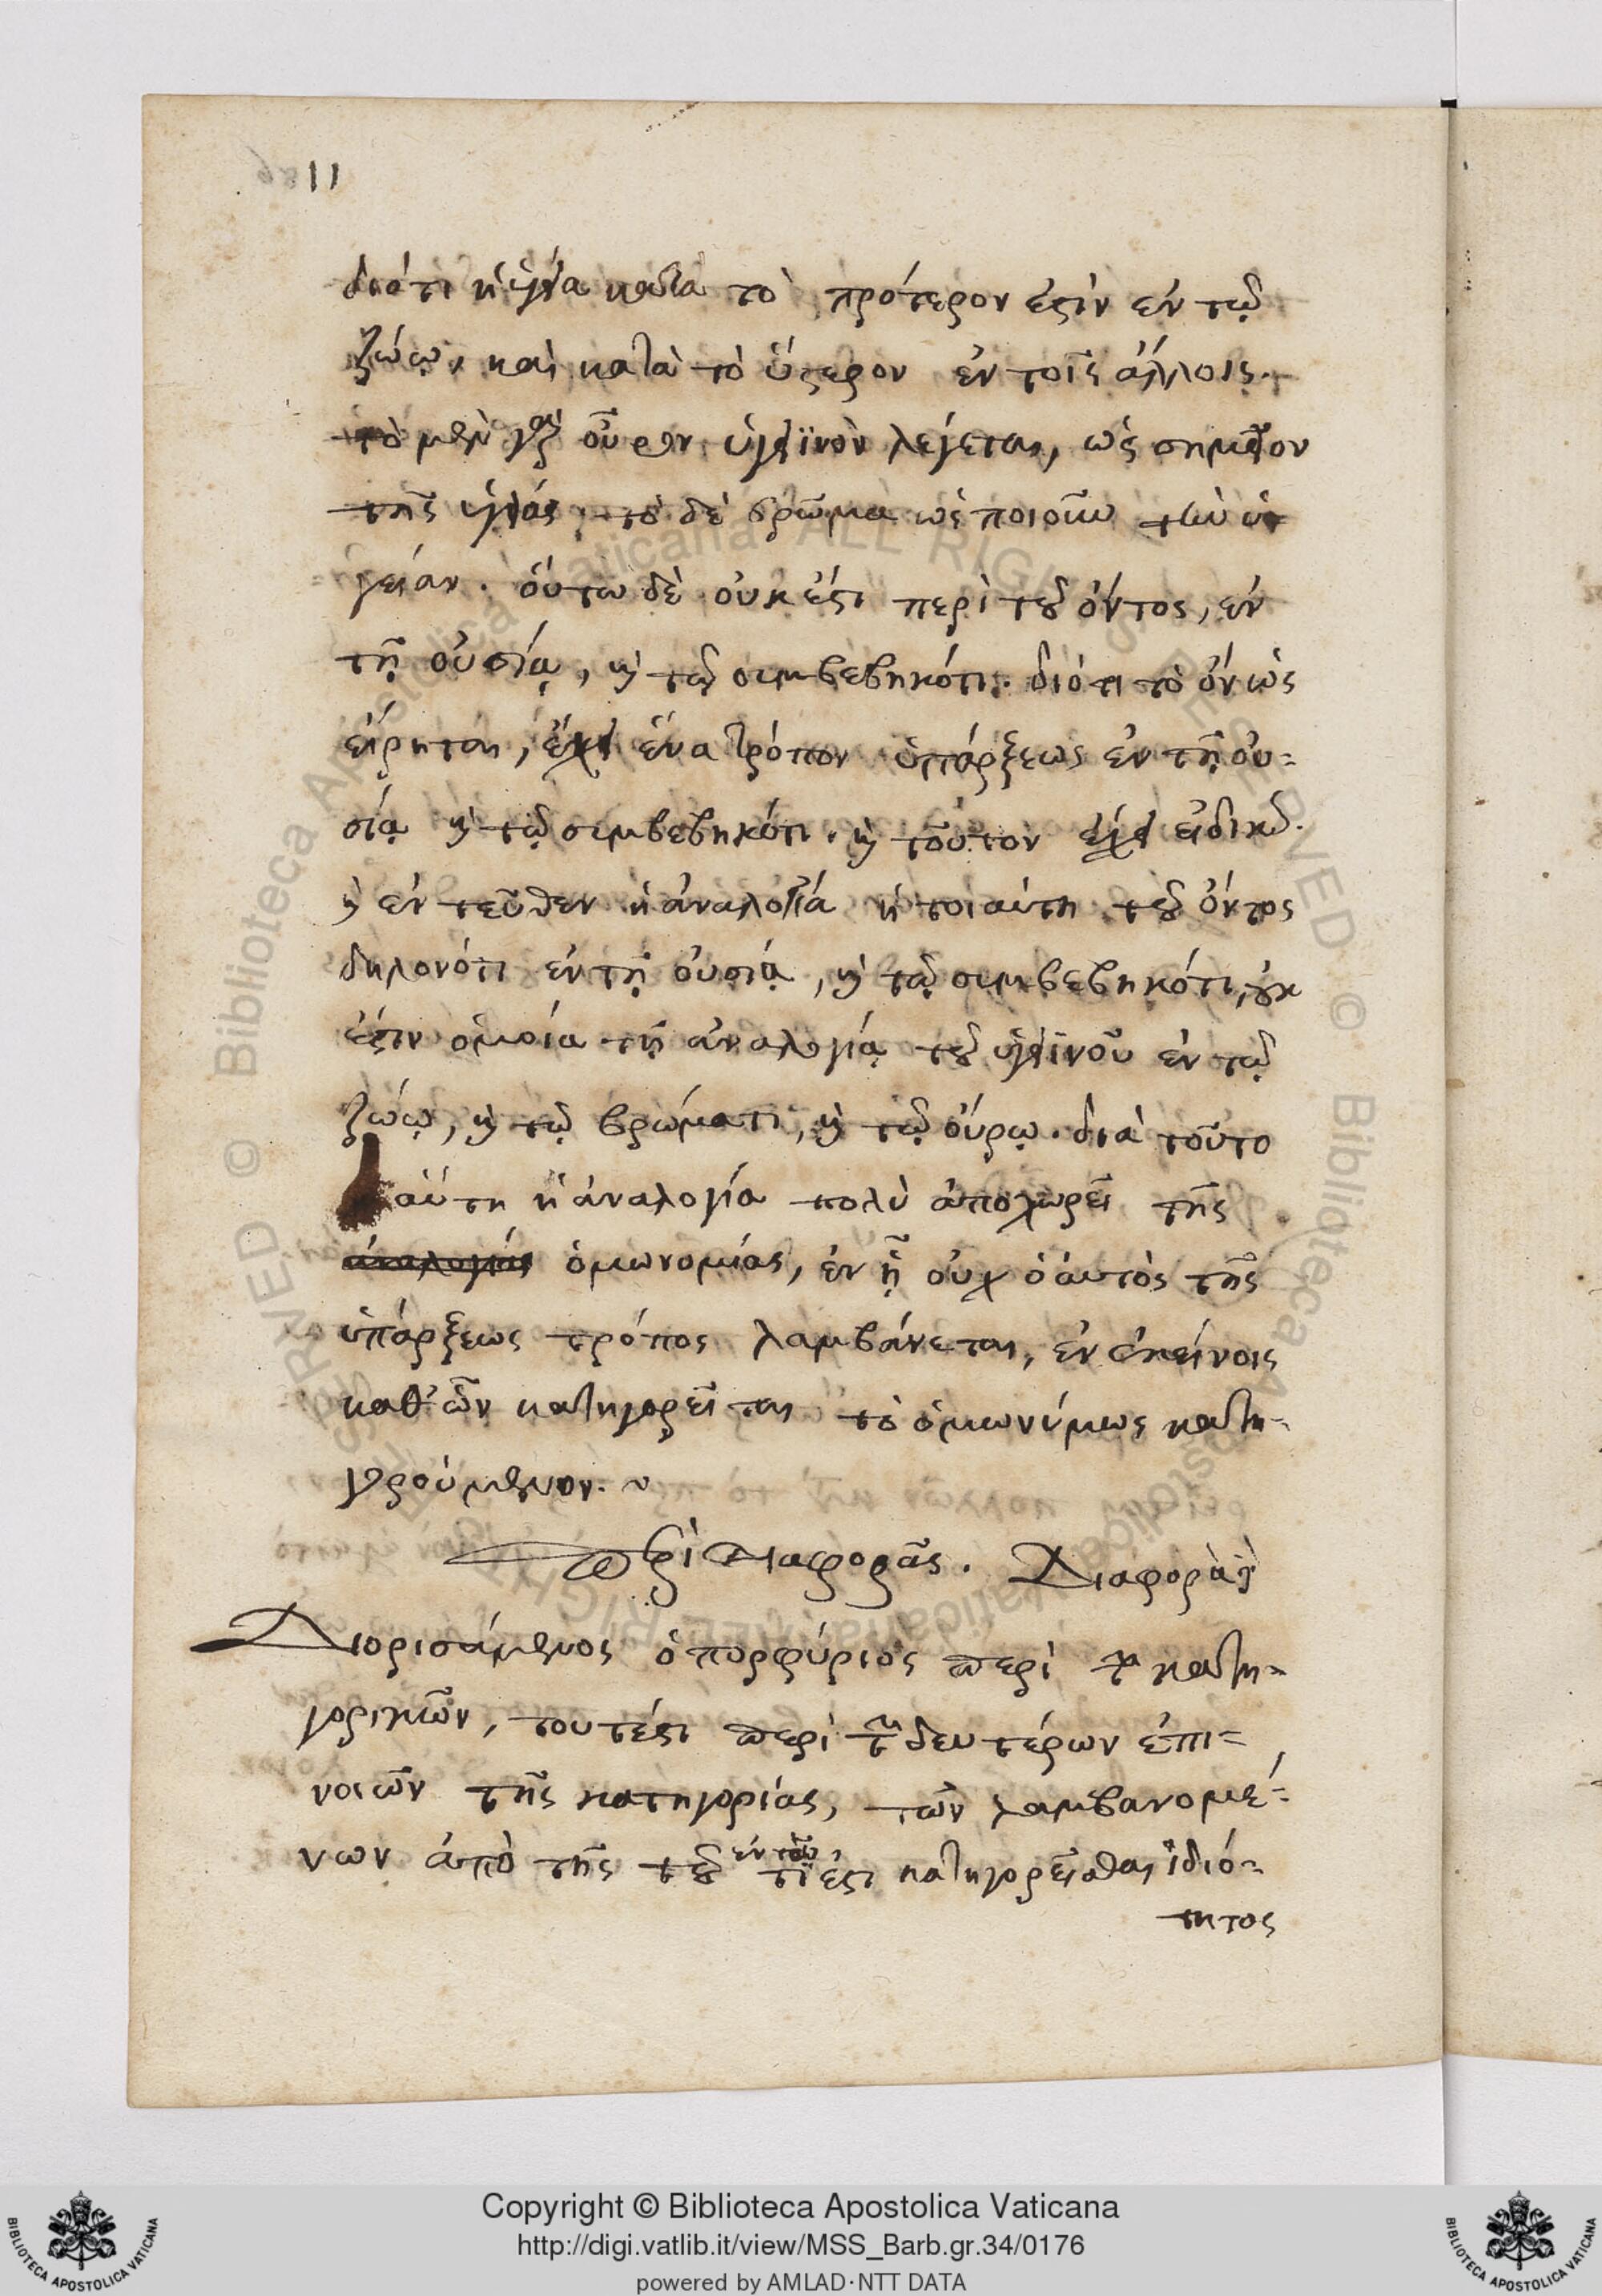 11
διότι ἡ ὑγεία κατὰ τὸ πρότερον ἐστὶν ἐν τῷ
ζώῳ, καὶ κατὰ τὸ ὕστερον ἐν τοῖς ἄλλοις.
τὸ μὲν γὰρ οὖρον ὑγιεινὸν λέγεται, ὡς σημεῖον
τῆς ὑγείας, τὸ δὲ βρῶμα ὡς ποιοῦν τὴν ὑ
γείαν. οὕτω δὲ οὐκ ἔστι περὶ τοῦ ὄντος, ἐν
τῇ οὐσίᾳ, καὶ τῷ συμβεβηκότι. διότι τὸ ὂν ὡς
εἴρηται, ἔχει ἕνα τρόπον ὑπάρξεως ἐν τῇ οὐ=
σίᾳ καὶ τῷ συμβεβηκότι. καὶ τοῦτον ἔχει
καὶ ἐντεῦθεν ἡ ἀναλογία ἡ τοιαύτη τοῦ ὄντος
δηλονότι ἐν τῇ οὐσίᾳ, καὶ τῷ συμβεβηκότι, οὐκ
ἔστιν ὁμοία τῇ ἀναλογίᾳ τοῦ ὑγιεινοῦ ἐν τῷ
ζώῳ, καὶ τῷ βρώματι, καὶ τῷ οὔρῳ. διὰ τοῦτο
αὕτη ἡ ἀναλογία πολὺ ἀποχωρεῖ τῆς
ἀναλογίας ὁμωνομίας, ἐν ᾗ οὐχ ὁ αὐτὸς τῆς
ὑπάρξεως τρόπος λαμβάνεται, ἐν ἐκείνοις
καθ' ὧν κατηγορεῖται τὸ ὁμωνύμως κατη=
γορούμενον.
Περὶ Διαφορᾶς. Διαφορὰ
Διορισάμενος ὁ πορφύριος περὶ τῶν κατη=
γορικῶν, τουτέστι περὶ τῶν δευτέρων ἐπι=
νοιῶν τῆς κατηγορίας, τῶν λαμβανομέ=
νων ἀπὸ τῆς τοῦ ἐν τῷ τί ἐστι κατηγορεῖσθαι ἰδιό=
τητος
Copyright © Biblioteca Apostolica Vaticana
http://digi.vatlib.it/view/MSS_Barb.gr.34/0176
powered by AMLAD·NTT DATA
BIBLIOTECA APOSTOLICA VATICANA
BIBLIOTECA APOSTOLICA VATICANA